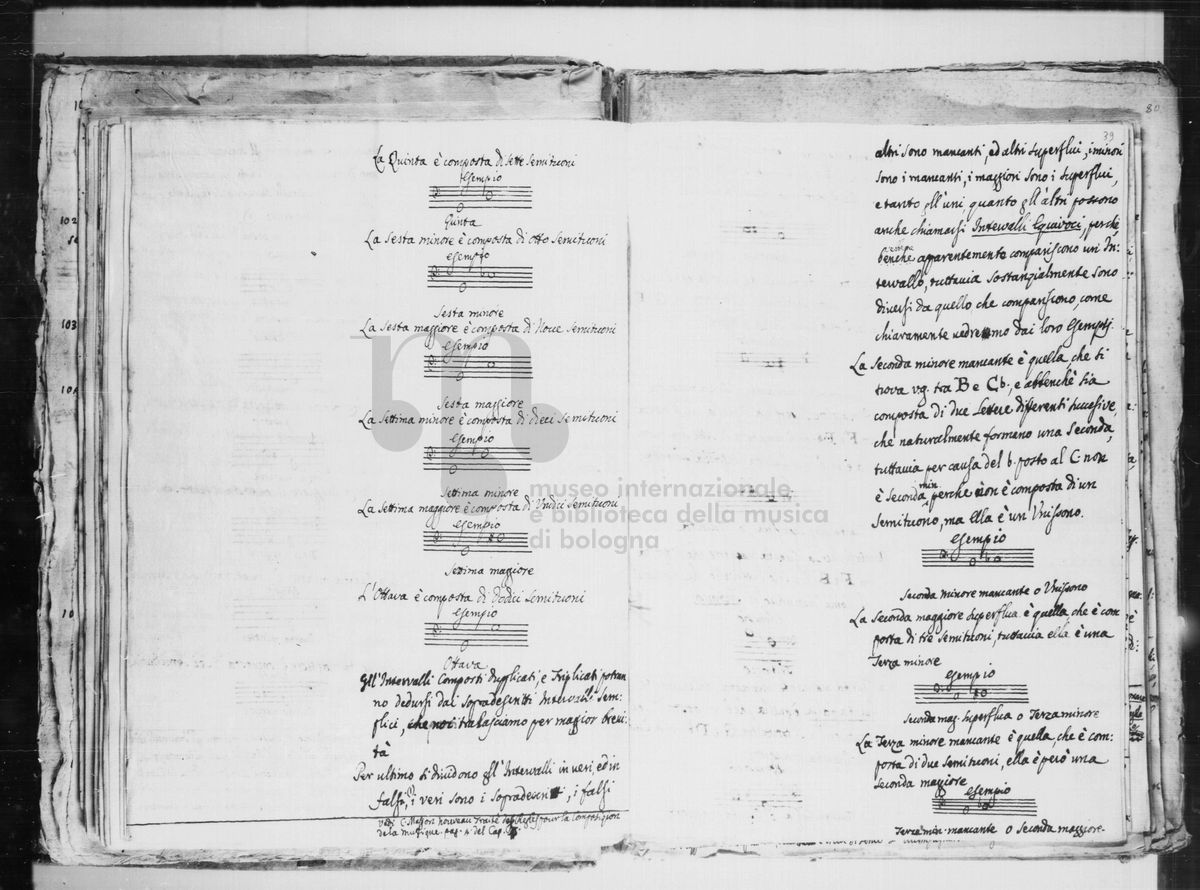 La Quinta è composta di sette semituoni
Esempio
Quinta
La sesta minore è composta di otto semituoni
esempio
Sesta minore
La sesta maggiore è composta di Nove semituoni
esempio
Sesta maggiore
La settima minore è composta di dieci semituoni
esempio
Settima minore
La settima maggiore è composta di Undici semituoni
esempio
Settima maggiore
L'Ottava è composta di dodici semituoni
esempio
Ottava
Gll'Intervalli Composti duplicati, e Triplicati potran
no dedursi dai sopradescritti Intervalli sem:
plici, che noi tralasciamo per maggior brevi:
tà
Per ultimo si dividono gll'Intervalli in veri ed in
falsi, i veri sono i sopradescritti, i falsi
Vedi C. Masson nouveau Traité des Regles pour la Composition
de la musique. pag. 4 del Cap.
80
39
altri sono mancanti, ed altri superflui, i minori
sono i mancanti, i maggiori sono i superflui,
e tanto gll'uni quanto gll'altri possono
anche chiamarsi Intervalli Equivoci, perchè,
benche apparentemente compariscono un In:
tervallo, tuttavia sostanzialmente sono
diversi da quello che compariscono, come
chiaramente vedremo dai loro Esempj.
La seconda minore mancante è quella che si
trova vg. tra B e Cb; e abbenchè sia
composta di due Lettere differenti successive,
che naturalmente formano una seconda,
tuttavia per causa del b. posto al C non
è seconda min. perche non è composta di un
semituono, ma ella è un Unissono.
esempio
Seconda minore mancante o Unissono
La seconda maggiore superflua è quella che è com
posta di tre semituoni, tuttavia ella è una
Terza minore
esempio
Seconda mag. superflua o Terza minore
La Terza minore mancante è quella, che è com:
posta di due semituoni, ella è però una
seconda maggiore
esempio
Terza min. mancante o seconda maggiore.
102
103
10
museo internazionale
e biblioteca della musica
di bologna